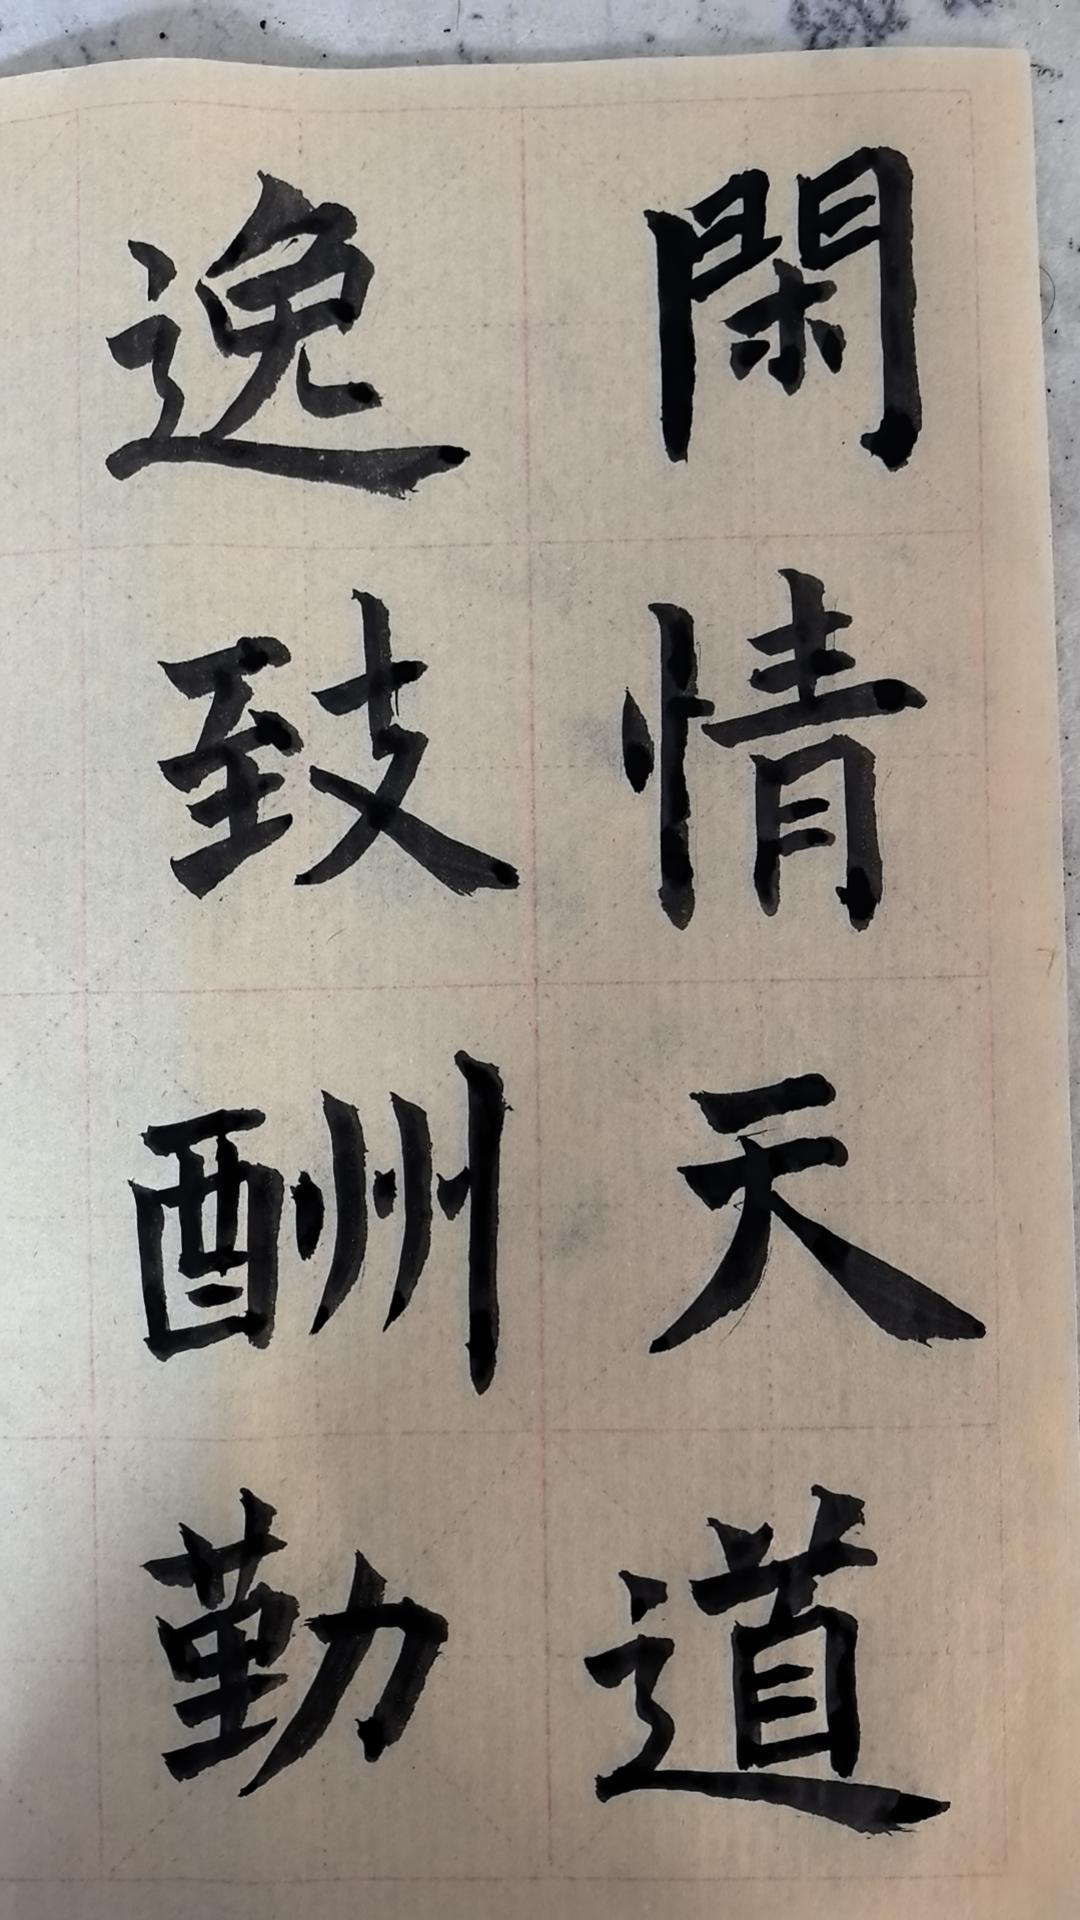 閑情
逸致
天道
酬勤